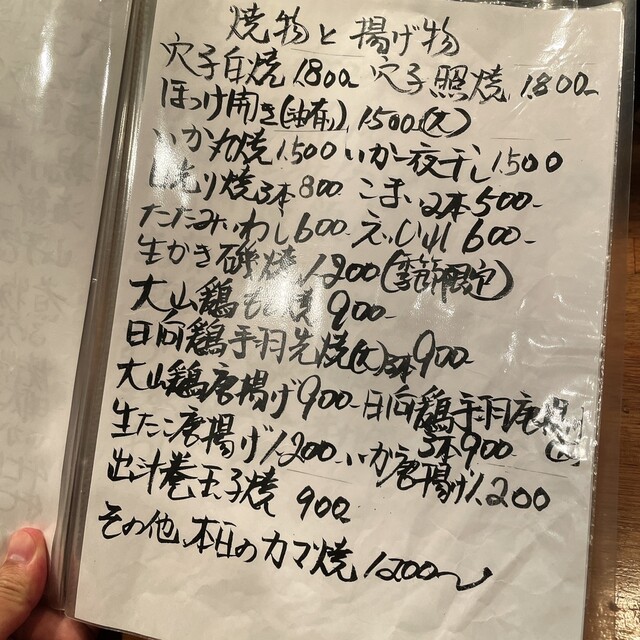 焼物と揚げ物
穴子白焼1.800 穴子照焼1.800
ほっけ開き(油有)1500(大)
いか丸焼1.500 いか一夜干し1.500
焼3本800 こまい2本500
たたみいわし600 えいひれ600
生かき磯焼1200(季節限定)
大山鶏もも焼900
日向鶏手羽先焼(大)3本900
大山鶏唐揚げ900 日向鶏手羽唐揚
3本900
生たこ唐揚げ1.200 いか唐揚げ1.200
出汁巻玉子焼 900
その他、本日のカマ焼1200〜